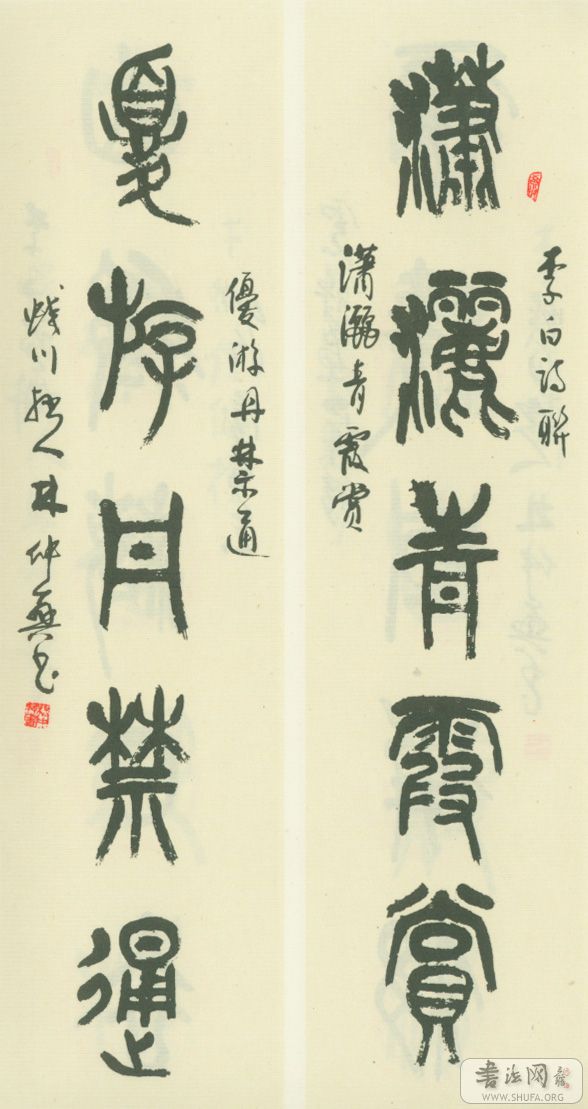 李白詩聯
瀟灑青霞賞
瀟灑青霞賞
優游丹禁通
憂游丹禁通
林仲興書
書法网
WWW.SHUFA.ORG